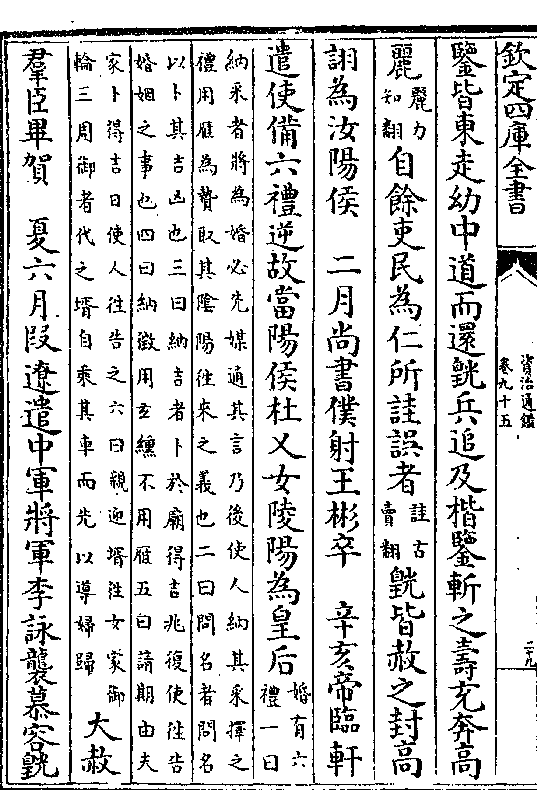 欽定四庫全書
資治通鑑
卷九十五
二十九
鑒皆東走幼中道而還皝兵追及楷鑒斬之壽充奔高
麗麗力知翻自餘吏民為仁所詿誤者詿古賣翻皝皆赦之封高
詡為汝陽侯 二月尚書僕射王彬卒 辛亥帝臨軒
遣使備六禮逆故當陽侯杜乂女陵陽為皇后婚有六禮一曰
納采者將為婚必先媒通其言乃後使人納其采擇之
禮用雁為贄取其陰陽往來之義也二曰問名者問名
以卜其吉凶也三曰納吉者卜於廟得吉兆復使往告
婚姻之事也四曰納徵用玄纁不用雁五曰請期由夫
家卜得吉日使人往告之六曰親迎壻往女家御
輪三周御者代之壻自乘其車而先以導婦歸大赦
羣臣畢賀 夏六月段遼遣中軍將軍李詠襲慕容皝